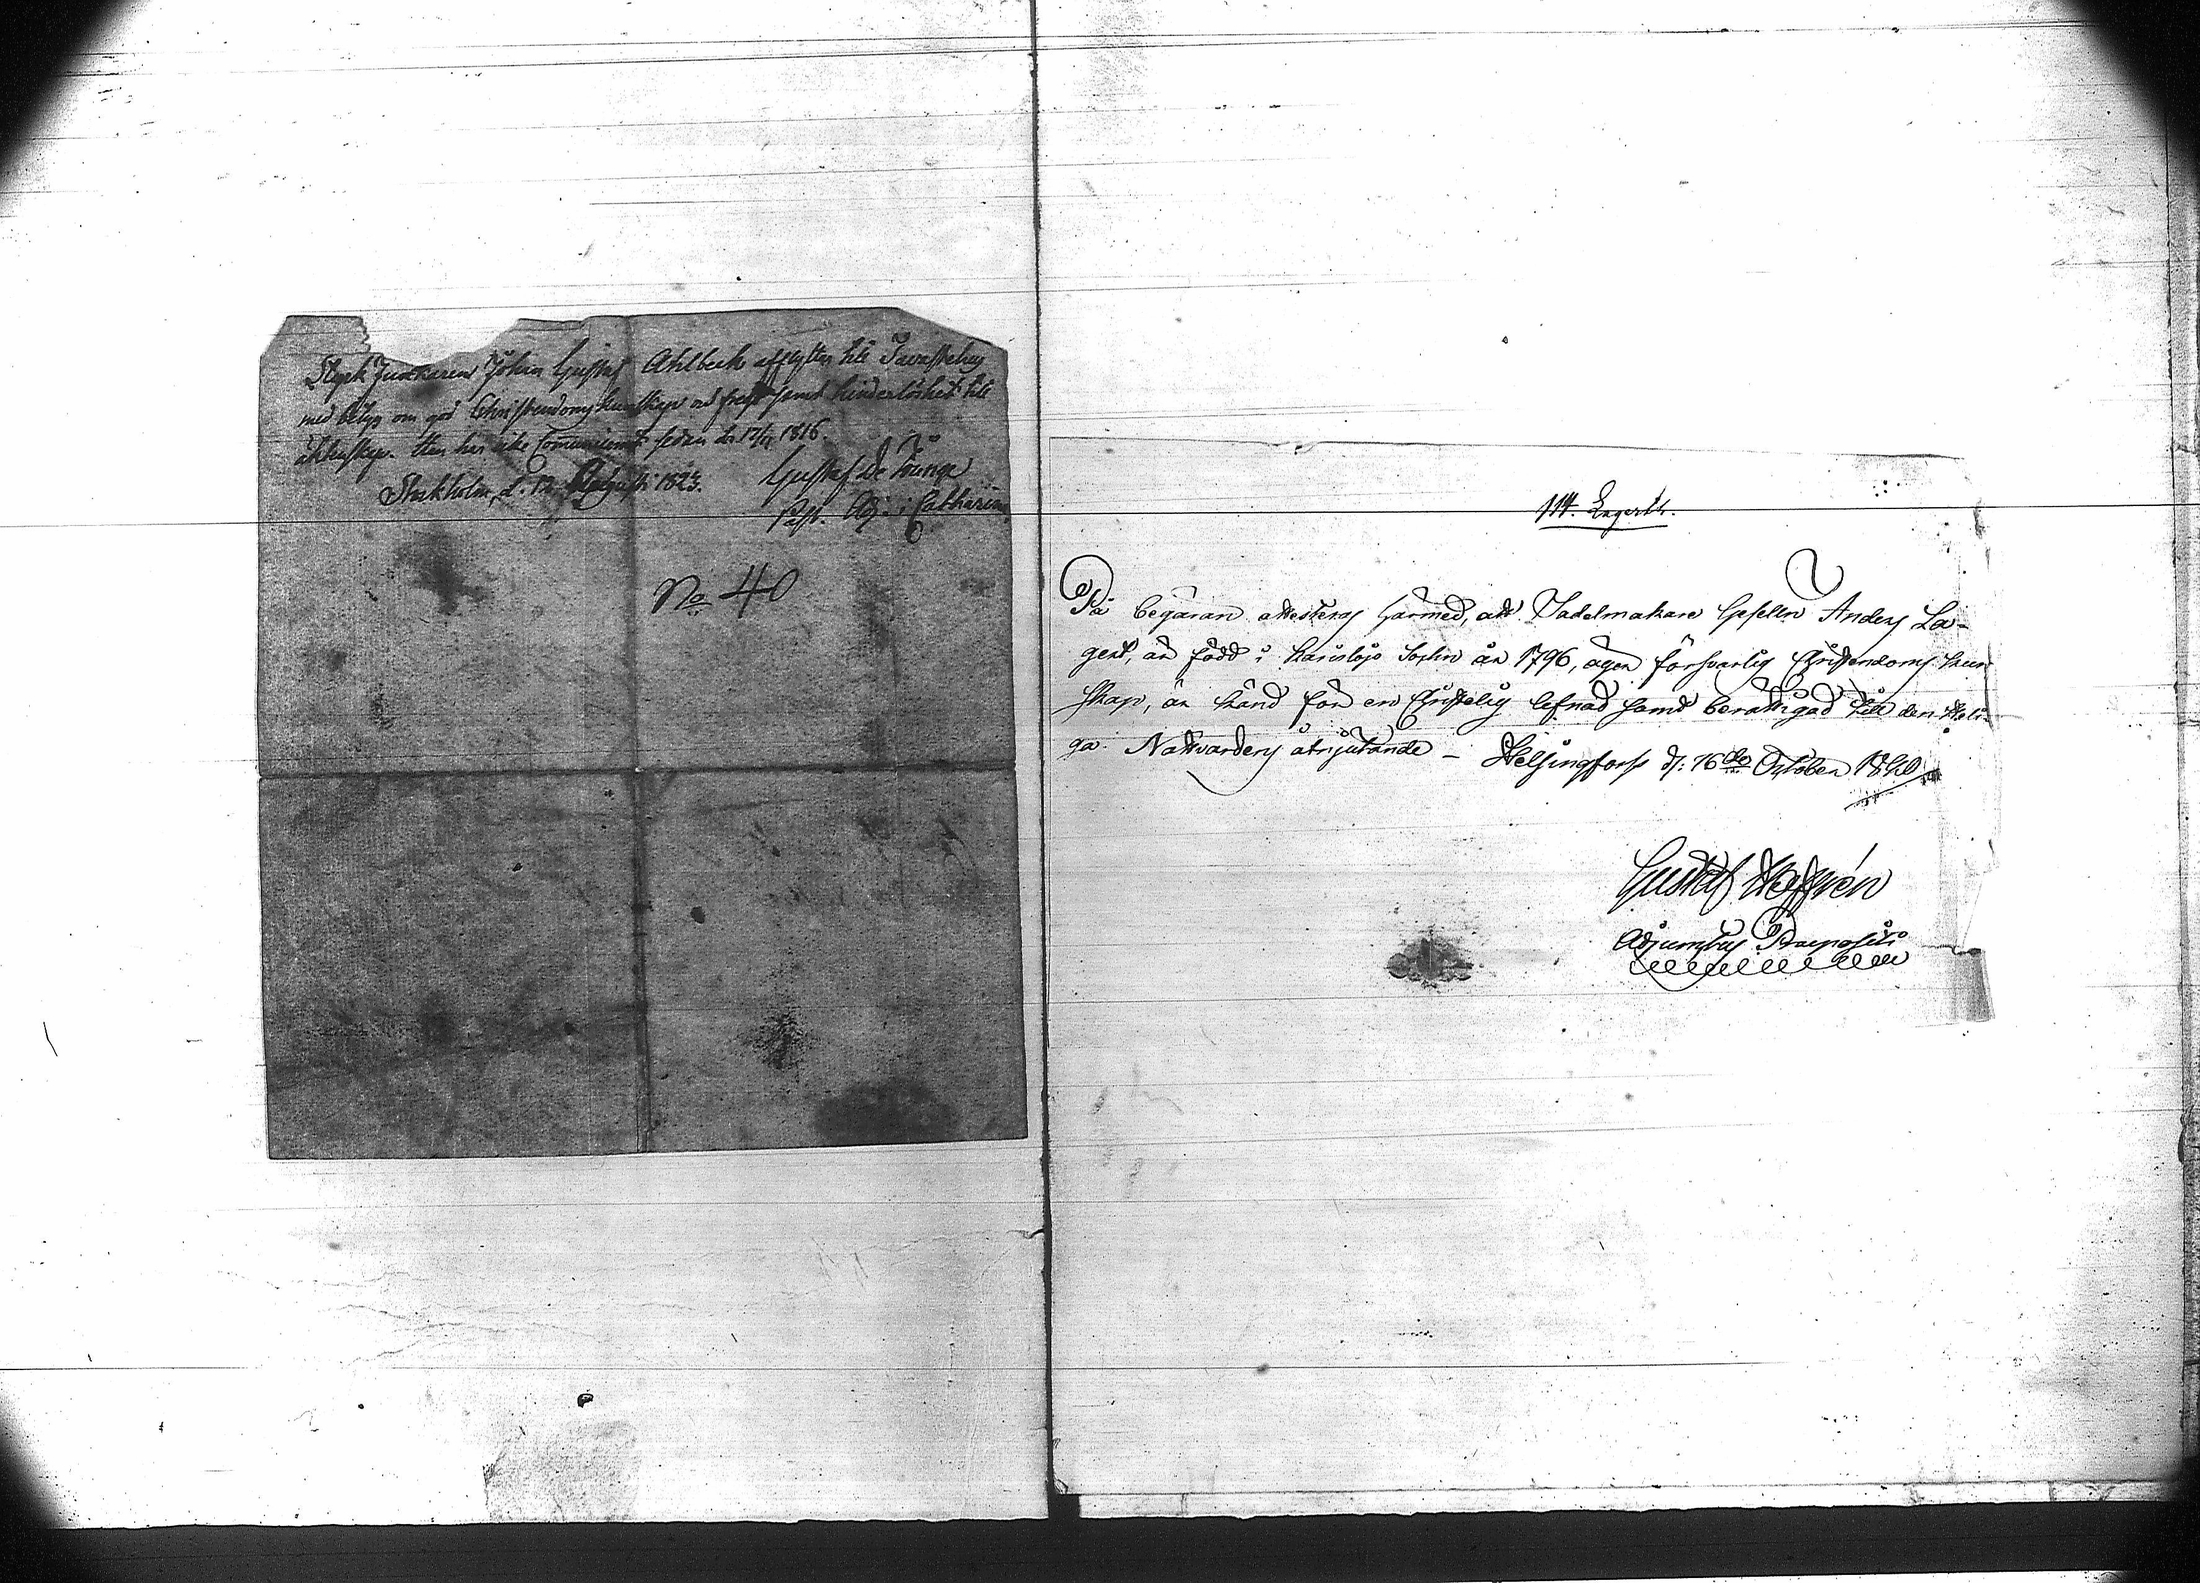 Styck Junkaren Johan Gustaf Ahlbeck afflyttar till Tavastehus
med betyg om god Christendoms kunskap och frejd samt hinderlöshet till
äktenskap. Han har icke Comunicerat sedan d. 17/11 1816.
Stockholm, d. 12 Augusti 1823.
Gustaf De Tounge
Past. Adj. i Catharina
No 40
N4. Lagert.
På begäran attesteras härmed, att Sadelmakare Gesellen Anders La-
gert, är född i Karislojo Sockn år 1796, äger försvarlig Christendoms kun
skap, är känd för en Christelig lefnad samt berättigad till den Heli-
ga Nattvardens åtnjutande – Helsingfors d: 16de October 1820
Gustaf
Adjunctus Praepositi